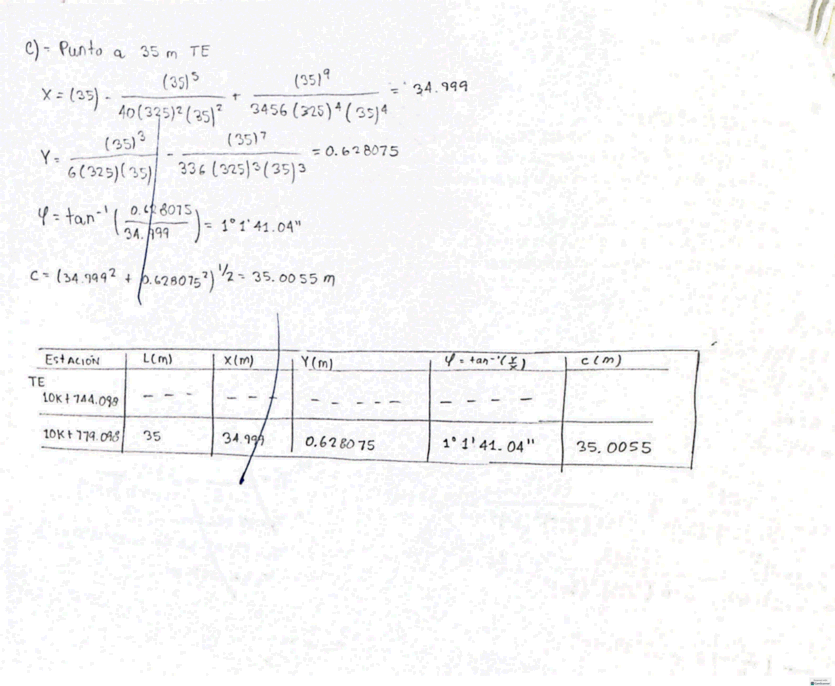 c)- Punto a 35 m TE
X = (35) - (35)⁵ / 40(325)²(35)² + (35)⁹ / 3456(325)⁴(35)⁴ = 34.999
Y = (35)³ / 6(325)(35) - (35)⁷ / 336(325)³(35)³ = 0.628075
φ = tan⁻¹ (0.628075 / 34.999) = 1° 1' 41.04"
C = (34.999² + 0.628075²)^1/2 = 35.0055 m
EstACIÓN L(m) X(m) Y(m) φ = tan⁻¹(Y/X) C(m)
TE
10K+744.098 - - - - - - - - - - - - - - -
10K+779.098 35 34.999 0.628075 1° 1' 41.04" 35.0055